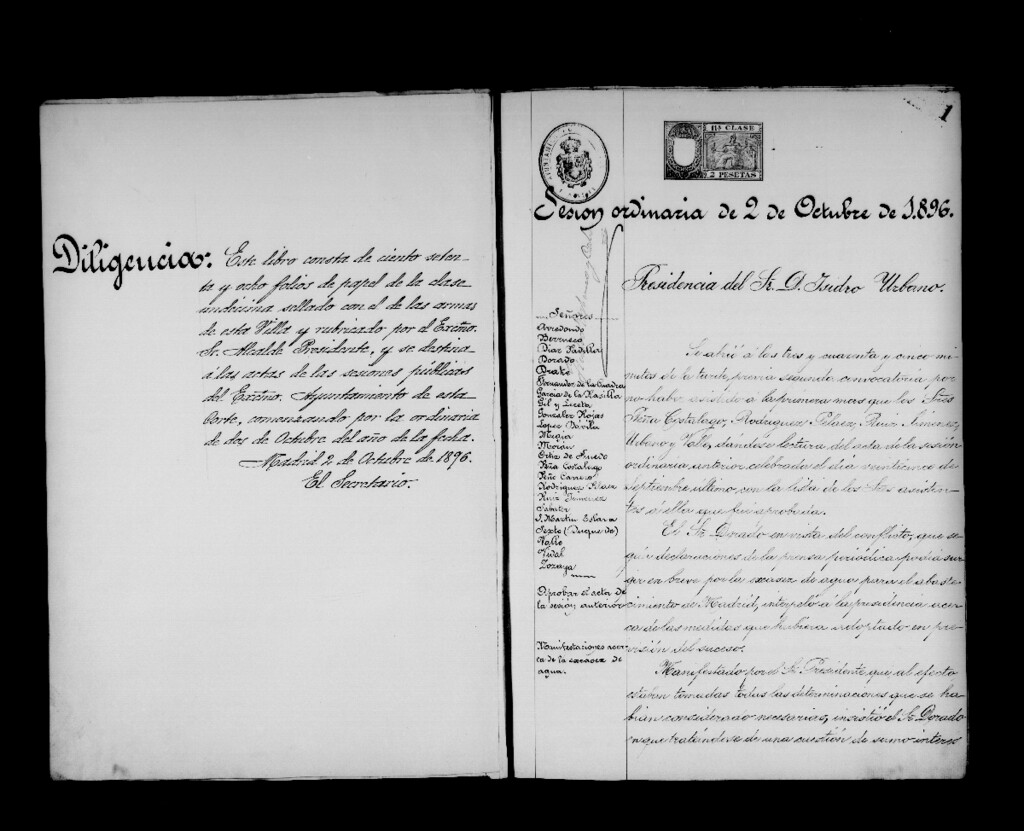 Diligencia: Este libro consta de ciento seten-
ta y ocho folios de papel de la clase
undécima sellado con el de las armas
de esta Villa y rubricado por el Excmo.
Sr. Alcalde Presidente, y se destina
á las actas de las sesiones públicas
del Excmo. Ayuntamiento de esta
Corte, comenzando por la ordinaria
de dos de Octubre del año de la fecha.
Madrid 2 de Octubre de 1896.
El Secretario.
1
11ª CLASE
2 PESETAS
Sesion ordinaria de 2 de Octubre de 1.896.
Presidencia del Sr. D. Isidro Urbano.
Señores
Arredondo
Berrueco
Diaz Padilla
Dorado
Drake
Fernandez de la Cuadra
Garcia de la Rasilla
Gil y Leceta
Gonzalez Rojas
Lopez Dávila
Mejia
Morán
Ortiz de Pinedo
Peña Costalago
Peñe Carrero
Rodriguez Pelaez
Ruiz Jimenez
Sabater
S. Martin Eslava
Sexto (Duque de)
Valle
Vidal
Zozaya
Aprobar el acta de
la sesión anterior
Manifestaciones acer-
ca de la escasez de
agua.
Se abrió á las tres y cuarenta y cinco mi-
nutos de la tarde, previa segunda convocatoria por
no haber asistido á la primera mas que los Sres
Peña Costalago, Rodriguez Pelaez, Ruiz Jimenez,
Urbano y Valle, dándose lectura del acta de la sesión
ordinaria anterior celebrada el dia veinticinco de
Septiembre último con la lista de los Sres asisten-
tes á ella que fué aprobada.
El Sr. Dorado en vista del conflicto, que se-
gún declaraciones de la prensa periódica podia sur-
gir en breve por la escasez de agua para el abaste-
cimiento de Madrid, interpeló á la presidencia acer-
ca de las medidas que hubiera adoptado en pre-
visión del suceso.
Manifestado por el Sr. Presidente que al efecto
estaban tomadas todas las determinaciones que se ha-
bian considerado necesarias, insistió el Sr. Dorado
en que tratándose de una cuestión de sumo interes